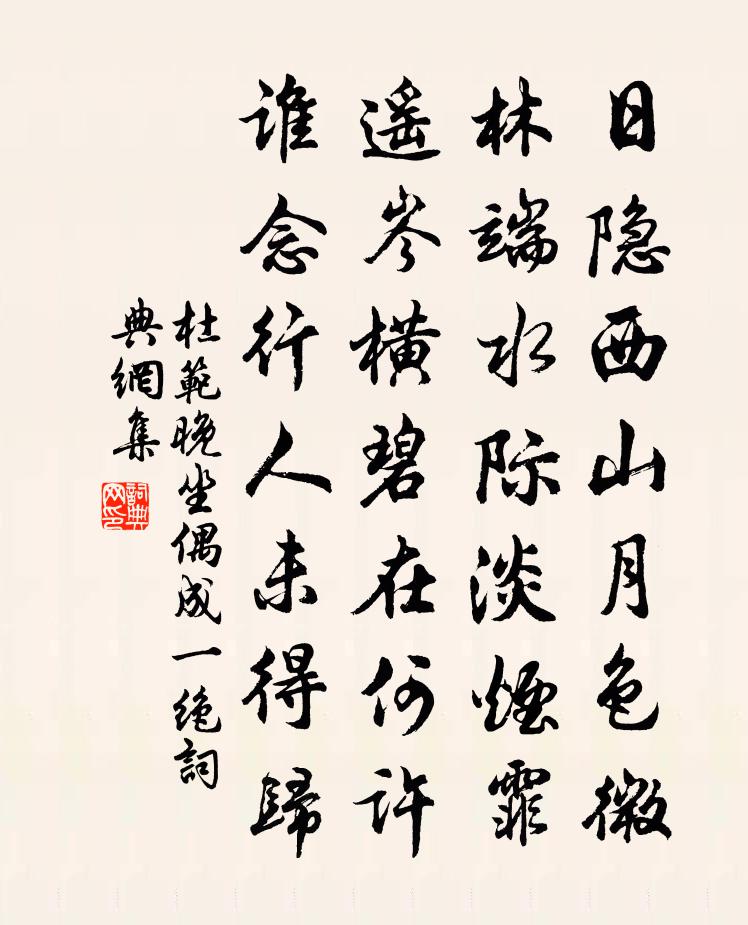 日隐西山月色微
林端水际淡烟霏
遥岑横碧在何许
谁念行人未得歸
杜範晚坐偶成一绝詞
典網集
詞典网印